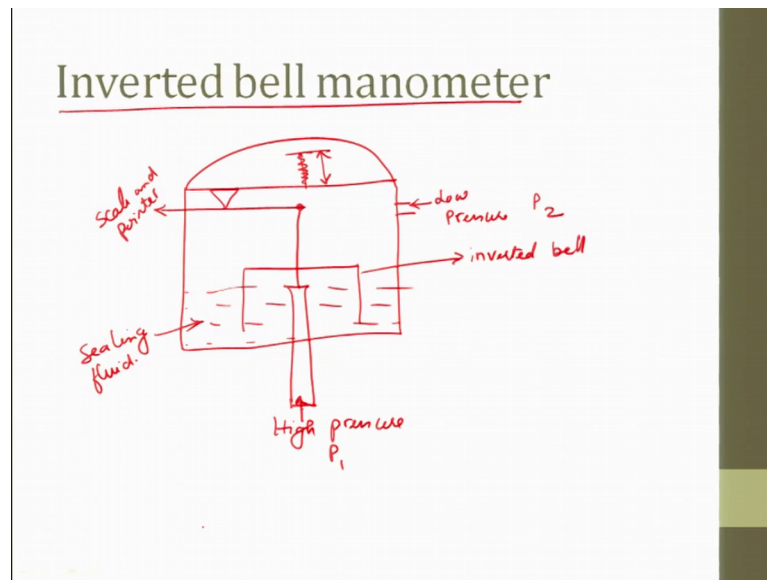 Inverted bell manometer
Scale and
pointer
Low
pressure P2
inverted bell
Sealing
fluid.
High pressure
P1